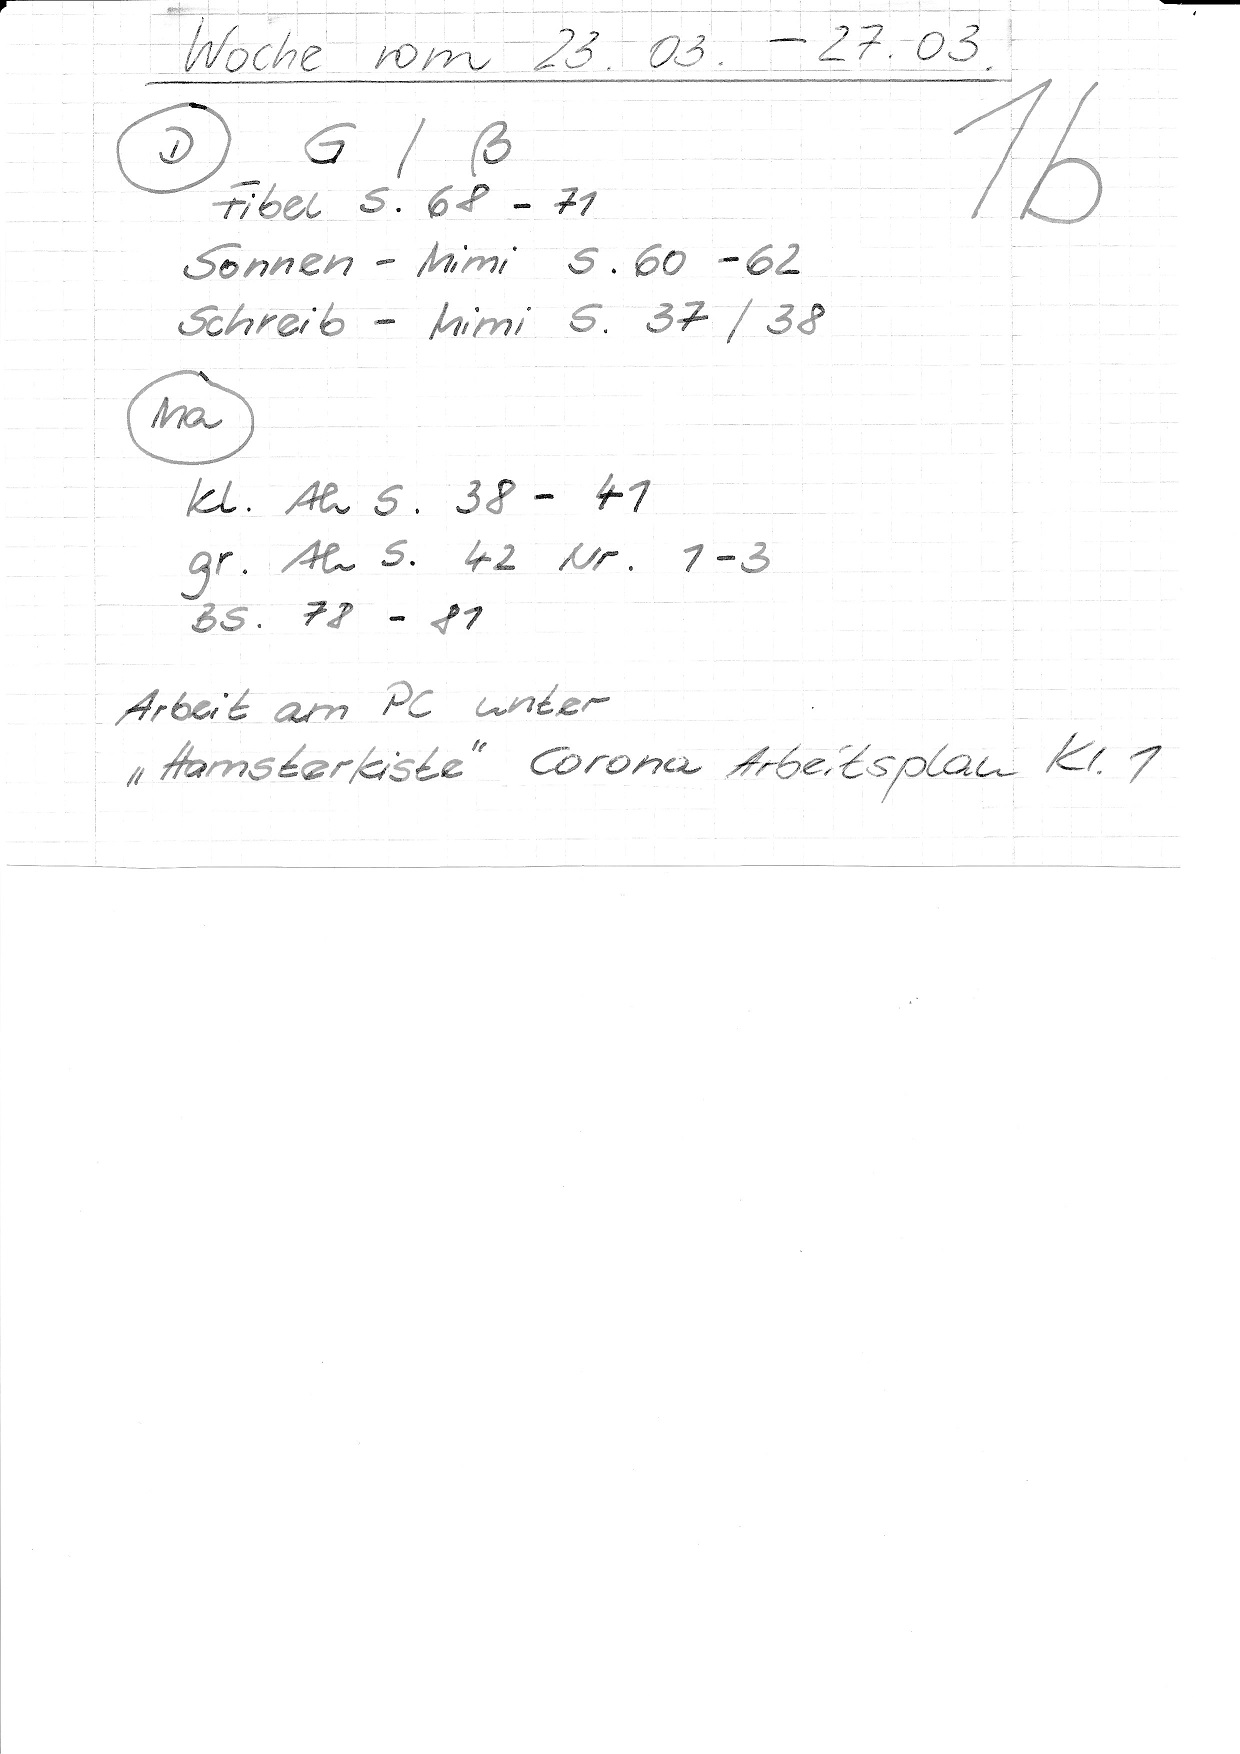 Woche vom 23. 03. - 27. 03.
1b
D G / ß
Fibel S. 68 - 71
Sonnen - Mimi S. 60 - 62
Schreib - Mimi S. 37 / 38
Ma
kl. Ah S. 38 - 41
gr. Ah S. 42 Nr. 1-3
BS. 78 - 81
Arbeit am PC unter
„Hamsterkiste“ Corona Arbeitsplan Kl. 1